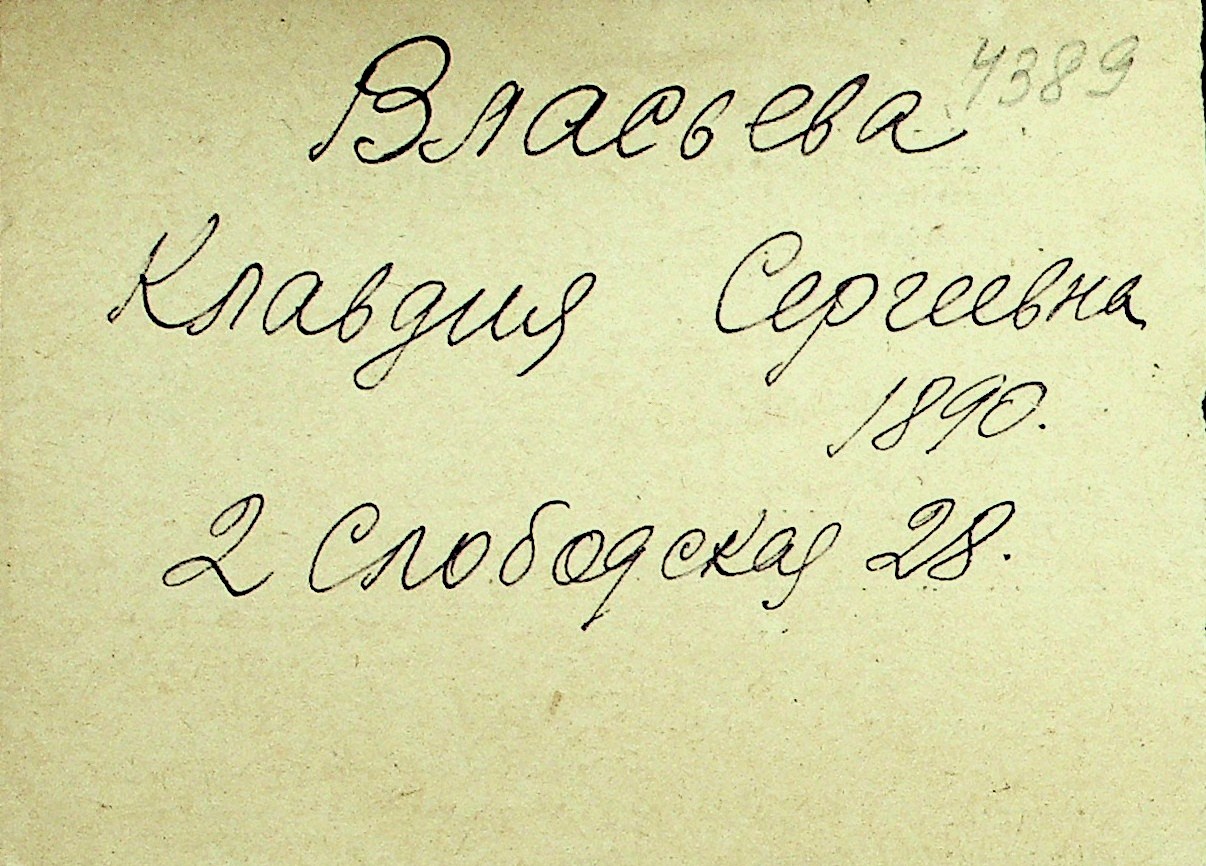 Власьева 4389
Клавдия Сергеевна
1890.
2 Слободская 28.